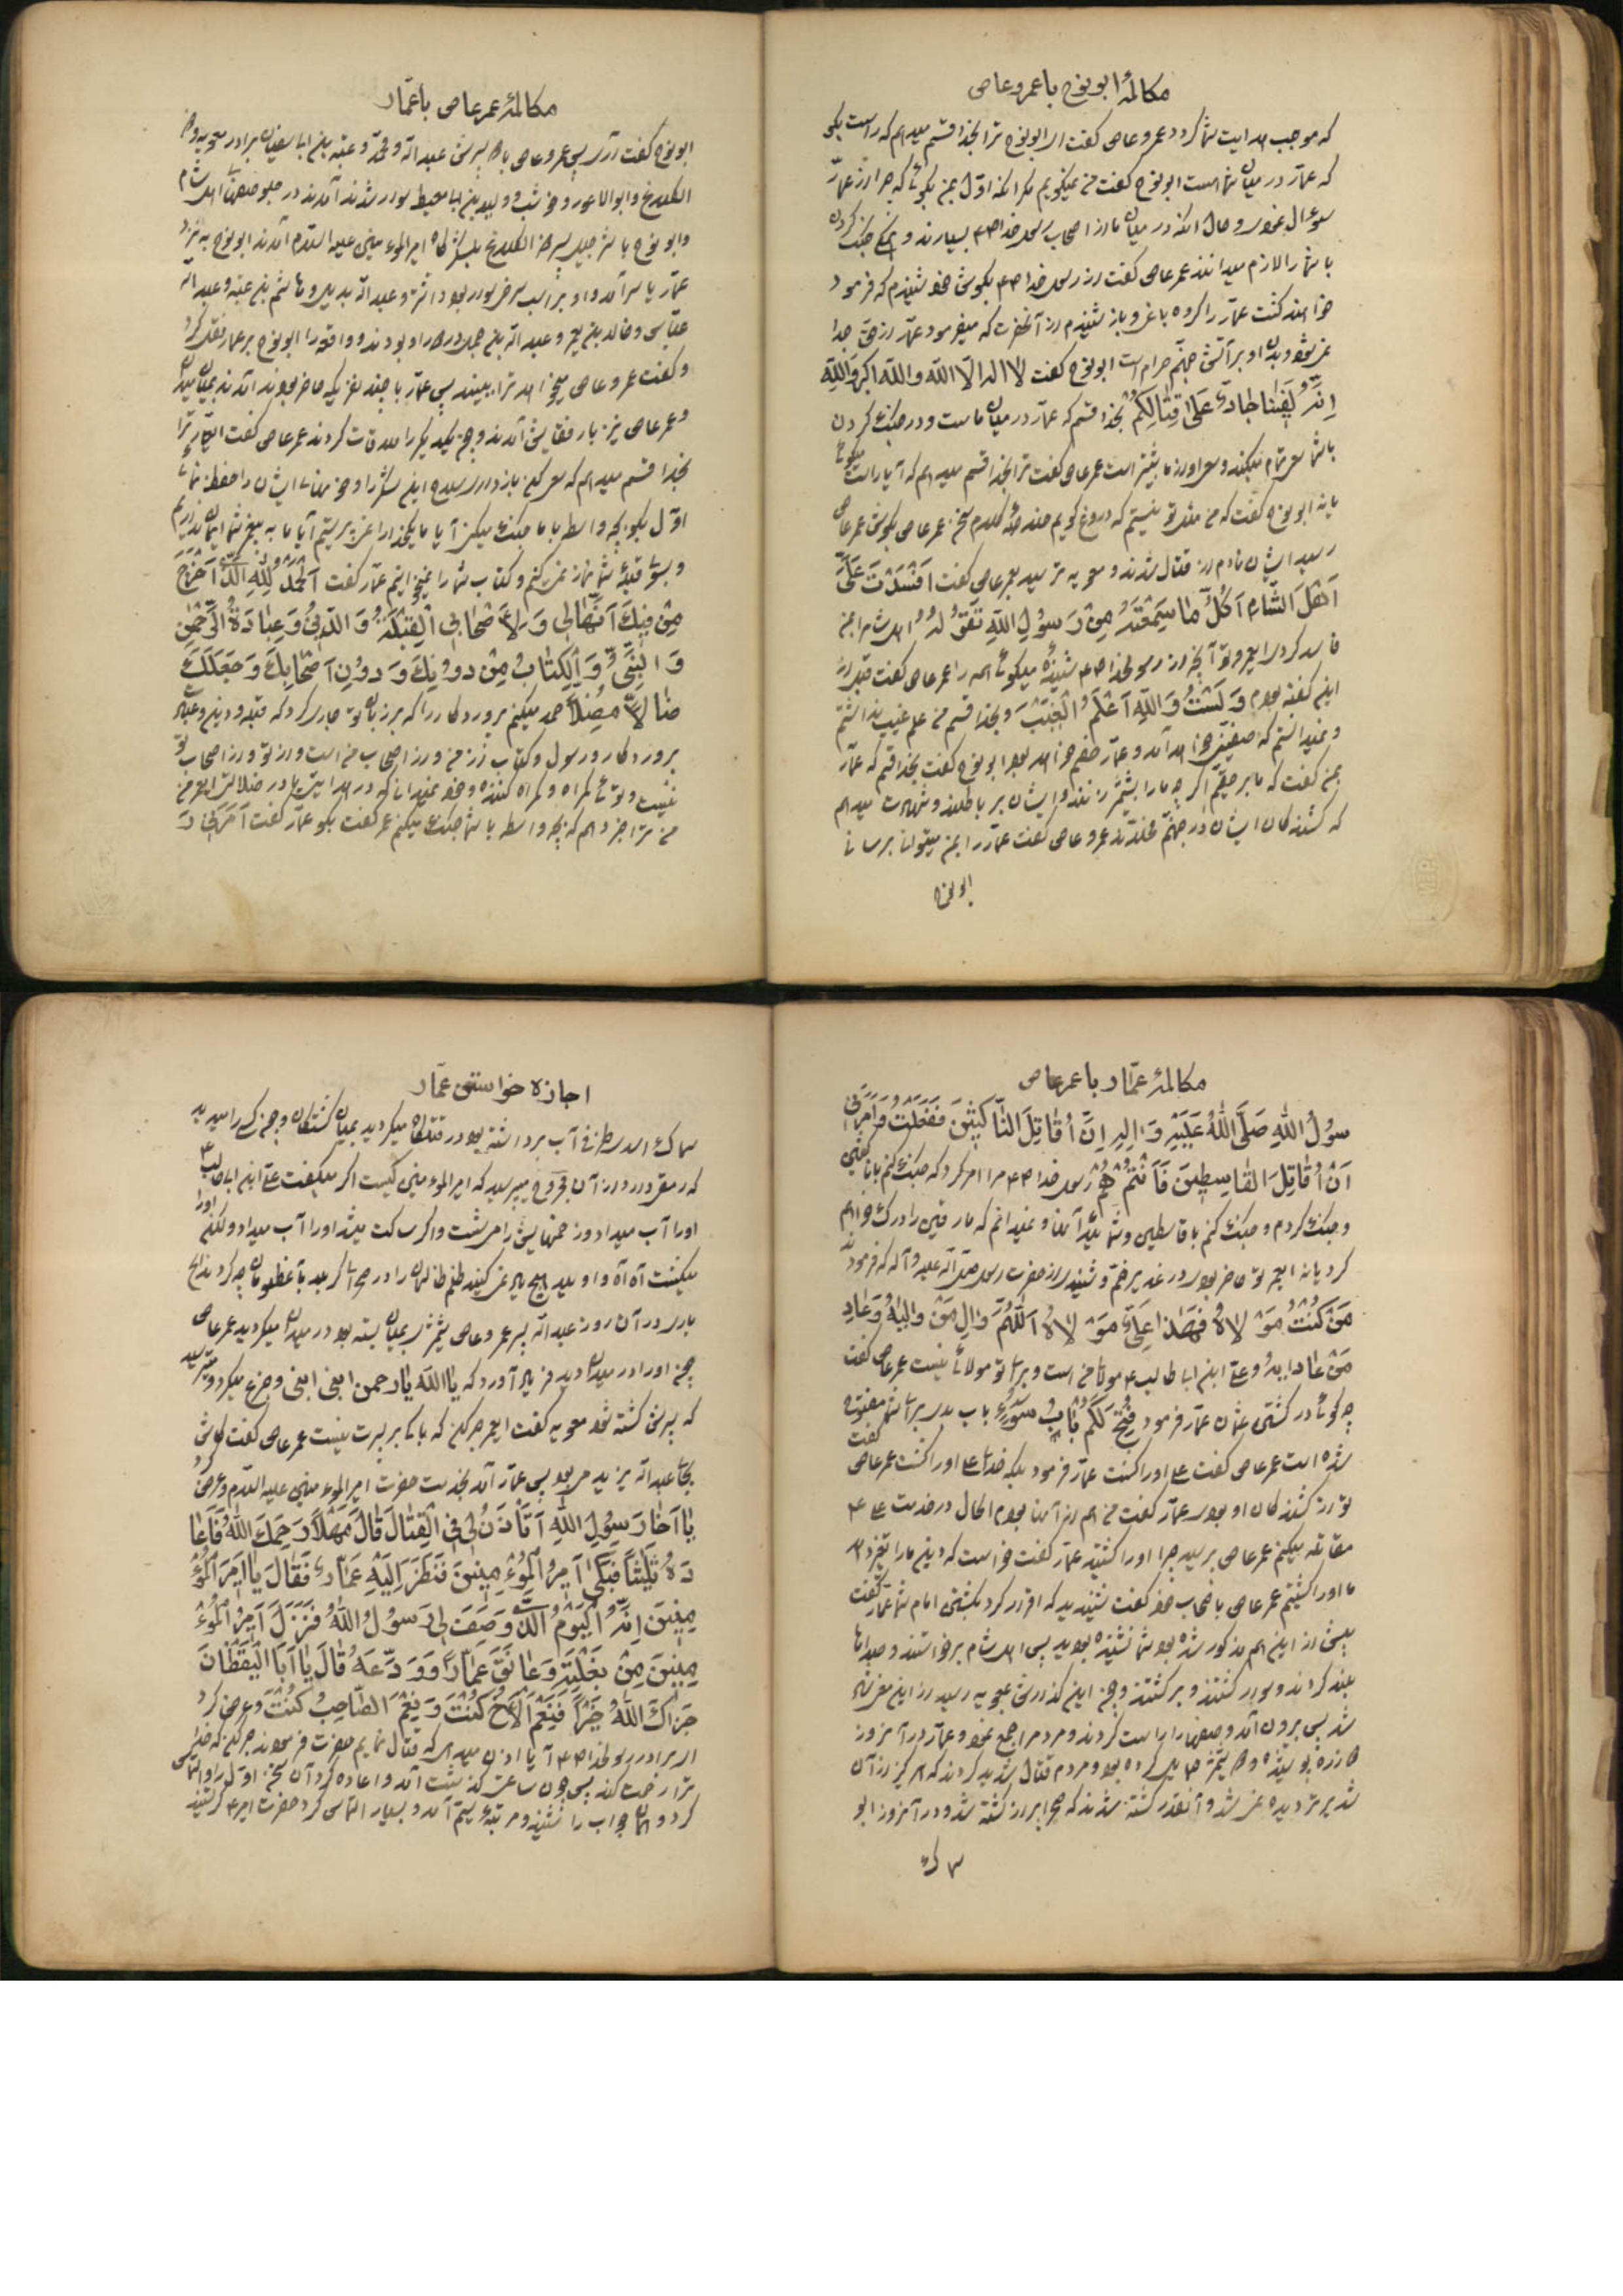 مکالمهٔ ابونوح با عمرو عاص
که موجب هدایت شما کردد عمرو عاص کفت ای ابونوح ترا بخدا قسم میدهم که راست بکو
که عمار در میان شما است ابونوح کفت من نمیکویم مکر آنکه اول بمن بکوئی که چرا از عمار
سوال نمودی و حال آنکه در میان ما از اصحاب رسول خدا ص بسیارند و همه جنک کردن
با شما را لازم میدانند عمر عاص کفت از رسول خدا ص بکوش خود شنیدم که فرمود
خواهند کشت عمار را کروه باغی و باز شنیدم از آنحضرت که میفرمود عمار از حق جدا
نمیشود و بدن او بر آتش جهنم حرام است ابونوح کفت لا اله الا الله والله اکبر والله
اِنَّهُ لَفینا جادٌّ عَلی قِتالِکُمْ بخدا قسم که عمار در میان ماست و در جنک کردن
با شما سعی تمام میکند و سعی او از ما بیشتر است عمر عاص کفت ترا بخدا قسم میدهم که آیا راست میکوئی
یا نه ابونوح کفت که من مثل تو نیستم که دروغ کویم
رسید ایشان نادم از قتال شدند و معویه ترسید بعمر عاص کفت اَفْسَدْتَ عَلَیَّ
اَهْلَ الشّامِ اَکُلُّ ما سَمِعْتَهُ مِنْ رَسُولِ اللّهِ تَقُولُهُ اهل شام را بمن
فاسد کردی ایعمرو تو آنچه از رسولخدا ص شنیدهٔ میکوئی همه را عمر عاص کفت قبل از
این کفته بودم وَ لَسْتُ وَاللّهِ اَعْلَمُ الْغَیْبَ و بخدا قسم من علم غیب نداشتم
و نمیدانستم که صفین خواهد آمد و عمار خصم خواهد بود ابونوح کفت بخدا قسم که عمار
بمن کفت که ما بر حقیم اکر چه ما را بشمشیر زنند و ایشان بر باطلند و شهادت میدهم
که کشته کان ایشان در جهنم مخلدند عمرو عاص کفت عمار را بمن میتوانی برسانی
ابونوح
مکالمهٔ عمر عاص با عمار
ابونوح کفت آری پس عمرو عاص با دو پسرش عبدالله و محمد و عتبه بن ابا سفیان برادر معویه و ذو
الکلاع و ابوالاعور و حوشب و ولید بن ابا معیط سوار شدند آمدند در جلو صفهای اهل شام
و ابونوح با شرحبیل پسر ذو الکلاع بلشکر کاه امیرالمؤمنین علیه السلام آمدند ابونوح به نزد
عمار یاسر آمد و او بر اسب سرخی سوار بود و اشتر و عبدالله بدیل و هاشم بن عتبه و عبدالله
عباس و خالد بن معمر و عبدالله بن حجل در دور او بودند و واقعه را ابونوح بر عمار نقل کرد
و کفت عمرو عاص میخواهد ترا ببیند پس عمار با چند نفریکه حاضر بودند آمدند بمیان میدان
و عمر عاص نیز با رفقایش آمدند و چون یکدیکر را ملاقات کردند عمر عاص کفت ایعمار ترا
بخدا قسم میدهم که سعی کن باز داری سلاح این لشکر را و خونهای ایشان را حفظ نمائی
اول بکو بچه واسطه با ما جنک میکنی آیا ما یکخدا را نمی پرستیم آیا ما به پیغمبر شما ایمان نداریم
و بسوی قبلهٔ شما نماز نمی کنیم و کتاب شما را نمیخوانیم عمار کفت اَلْحَمْدُ لِلّهِ الَّذی اَخْرَجَ
مِنْ فیکَ اَنَّها لی وَ لِاَصْحابی اَلْقِبْلَةُ وَ الدّینُ وَ عِبادَةُ الرَّحْمنِ
وَ النَّبِیُّ وَ الْکِتابُ مِنْ دُونِکَ وَ دُونِ اَصْحابِکَ وَ جَعَلَکَ
ضالاًّ مُضِلاًّ حمد میکنم پروردکار را که بر زبان تو جاری کرد که قبله و دین و عبادت
پروردکار و رسول و کتاب از من و از اصحاب من است و از تو و از اصحاب تو
نیست و توئی کمراه و کمراه کننده و خود نمیدانی که در هدایتی یا در ضلالت ایعمر من
من ترا خبر دهم که بچه واسطه با شما جنک میکنم عمر کفت بکو عمار کفت اَمَرَنی رَ
مکالمهٔ عمّار با عمر عاص
سُولُ اللّهِ صَلَّی اللّهُ عَلَیْهِ وَ الِهِ اِنْ اُقاتِلَ النّاکِثینَ فَفَعَلْتُ وَ اَمَرَنی
اَنْ اُقاتِلَ الْقاسِطینَ فَاَنْتُمْ هُمْ رسول خدا ص مرا امر کرد که جنک کنم با ناکثین
و جنک کردم و جنک کنم با قاسطین و شمائید آنها و نمیدانم که مارقین را درک خواهم
کرد یا نه ایعمر تو حاضر بودی در غدیر خم و شنیدی از حضرت رسول صلی الله علیه و آله که فرمود
مَنْ کُنْتُ مَوْلاهُ فَهذا عَلِیٌّ مَوْلاهُ اَللّهُمَّ والِ مَنْ والاهُ وَ عادِ
مَنْ عاداهُ و علی ابن ابا طالب ع مولای من است و برای تو مولائی نیست عمر عاص کفت
چه کوئی در کشتن عثمان عمار فرمود فَتَحَ لَکُمْ بابَ سُوءٍ باب بدی برای شما مفتوح
شده است عمر عاص کفت علی او را کشت عمار فرمود بلکه خدای علی او را کشت عمر عاص کفت
تو از کشنده کان او بودی عمار کفت من هم از آنها بودم الحال در خدمت علی ع
مقاتله میکنم عمر عاص پرسید چرا او را کشتید عمار کفت خواست که دین ما را تغیر دهد
ما او را کشتیم عمر عاص باصحاب خود کفت شنیدید که اقرار کرد بکشتن امام شما عمار کفت
پیش از این هم مذکور شده بود شما نشنیده بودید پس اهل شام برخواستند و صداها
بلند کردند و سوار کشتند و برکشتند و چون این کذارش بمعویه رسید از این مضطرب
شد پس بیرون آمد و صفها را راست کردند و مردم اجماع نمود و عمار در آنروز
زره پوشیده و شمشیر حمایل کرده بود و مردم قتال شدید کردند که هرکز از آن
شدیدتر دیده نمی شد و آنقدر کشته شدند که صحرا پر از کشته شد و در آنروز ابو
سماک
اجازه خواستن عمّار
سماک اسدی مطهرهٔ آب برداشته بود در قتلکاه میکردید بمیان کشتکان و چون کسی را میدید
که رمقی دارد از آن مجروح میپرسید که امیرالمؤمنین کیست اکر میکفت علی ابن ابا طالب ع
او را آب میداد و زخمهایش را میشست و اکر ساکت میشد او را آب میداد و لکن او را
میکشت
یاری در آن روز عبدالله پسر عمرو عاص شمشیر بمیان بسته بود در میدان میکردید عمر عاص
چون او را در میدان دید فریاد آورد که یا الله یا رحمن ابنی ابنی و جزع میکرد و میترسید
که پسرش کشته شود معویه کفت ایعمر صبر کن که باکی بر پسرت نیست عمر عاص کفت کاش
بجای عبدالله یزید می بود پس عمار آمد بخدمت حضرت امیرالمؤمنین علیه السلام و عرض کرد
یا اَخا رَسُولِ اللّهِ اَتَأْذَنُ لی فِی الْقِتالِ قالَ مَهْلاً رَحِمَکَ اللّهُ فَاَعا
دَهُ ثُلُثاً فَبَکی اَمیرُ الْمُؤْمِنینَ فَنَظَرَ اِلَیْهِ عَمّارٌ فَقالَ یا اَمیرَ الْمُؤْ
مِنینَ اِنَّهُ الْیَوْمُ الَّذی وَصَفَ لی رَسُولُ اللّهِ فَنَزَلَ اَمیرُ الْمُؤْ
مِنینَ مِنْ بَغْلَتِهِ وَ عانَقَ عَمّاراً وَ وَدَّعَهُ قالَ یا اَبَا الْیَقْظانِ
جَزاکَ اللّهُ خَیْراً فَنِعْمَ الْاَخُ کُنْتَ وَ نِعْمَ الصّاحِبُ کُنْتَ و عرض کرد
ای برادر رسولخدا ص آیا اذن میدهی که قتال نمایم حضرت فرمودند صبر کن که خدا
ترا رحمت کند پس چون ساعتی کذشت آمد و اعاده کرد آن سخن اول را و التماس
کرد و همان جواب را شنید و مرتبهٔ سیم آمد و بسیار التماس کرد حضرت امیر ع کریستند